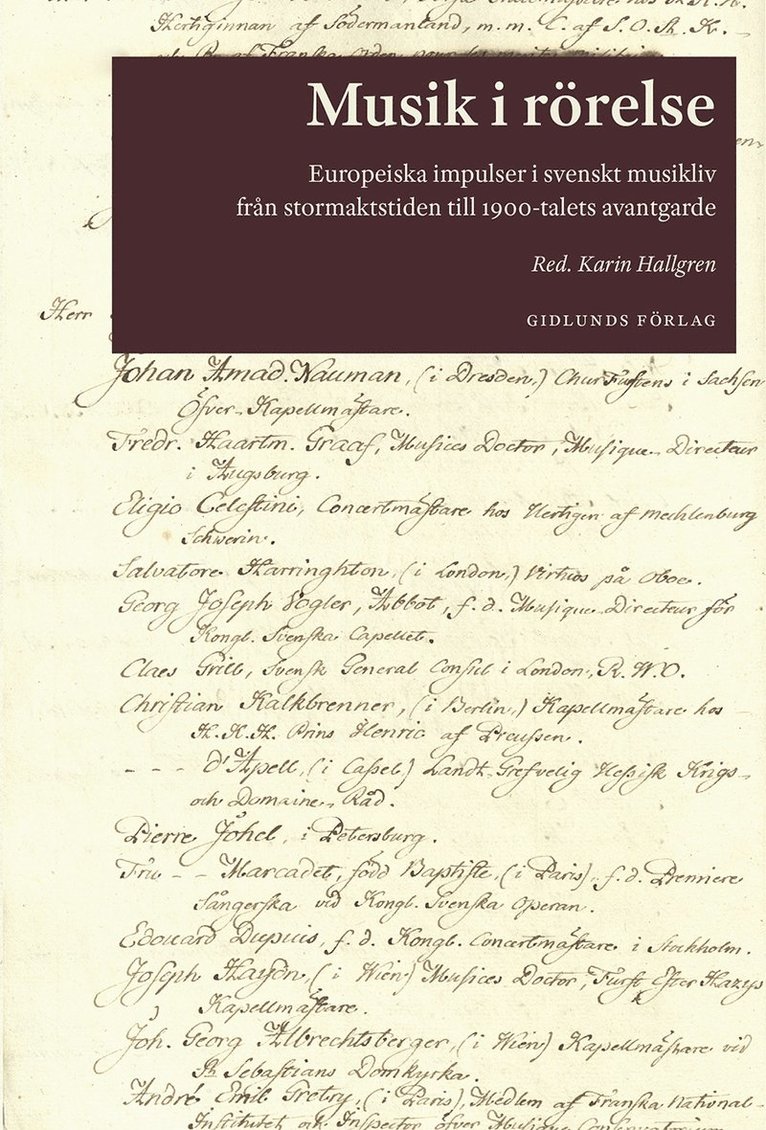 Hertiginnan af Södermanland, m.m. L. af S. O. St. K.
Musik i rörelse
Europeiska impulser i svenskt musikliv
från stormaktstiden till 1900-talets avantgarde
Red. Karin Hallgren
GIDLUNDS FÖRLAG
Herr
Johan Amad. Nauman, (i Dresden,) ChurFustens i Sachsen
Öfver-Kapellmästare.
Fredr. Haartm. Graaf, Musices Doctor, Musique-Directeur
i Augsburg.
Eligio Celestini, Concertmästare hos Hertigen af Mecklenburg
Schwerin.
Salvatore Harringhton, (i London,) Virtuos på Oboe.
Georg Joseph Vogler, Abbot, f. d. Musique-Directeur för
Kongl. Svenska Capellet.
Claes Grill, Svensk General Consul i London, R. W. O.
Christian Kalkbrenner, (i Berlin,) Kapellmästare hos
H. K. H. Prins Henric af Preussen.
- - - d'Apell, (i Cassel) Landt-Grefvelig Hessisk Krigs-
och Domaine-Råd.
Pierre Johel, i Petersburg.
Fru - - Marcadet, född Baptiste, (i Paris), f. d. Premiere
Sångerska vid Kongl. Svenska Operan.
Edouard Dupuis, f. d. Kongl. Concertmästare i Stockholm.
Joseph Haydn, (i Wien) Musices Doctor, Furst Ester Hazys
Kapellmästare.
Joh. Georg Albrechtsberger, (i Wien) Kapellmästare vid
St Sebastians Domkyrka.
André Emil Gretry, (i Paris), Medlem af Franska National-
Institutet och Inspector öfver Musique Conservatorium